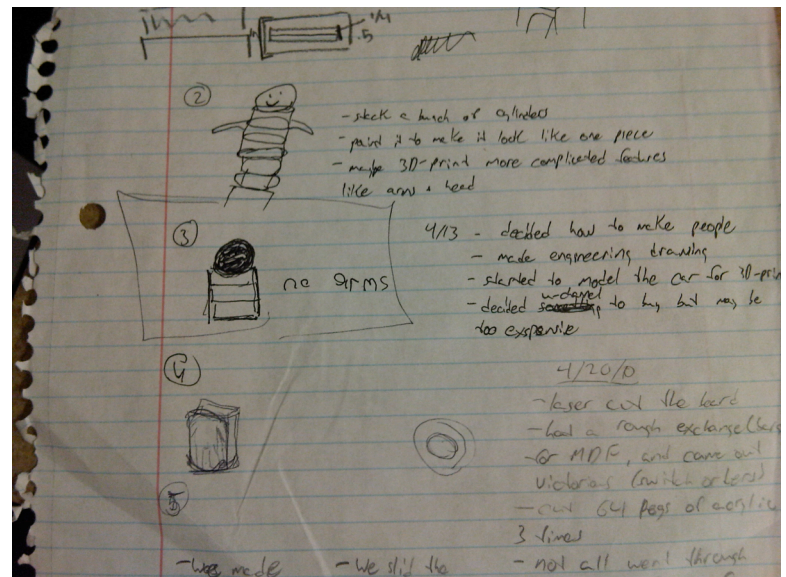 1/4
.5
②
- stack a bunch of cylinders
- paint it to make it look like one piece
- maybe 3D-print more complicated features
like arms + head
③
no arms
4/13 - decided how to make people
- made engineering drawing
- started to model the car for 3D-prin
- decided to buy but may be
too expensive
④
4/20/10
- laser cut the board
- had a rough exchange
for MDF, and came out
victorious
- cut 64 pegs of acrylic
3 times
- not all went through
- made
- We slid the